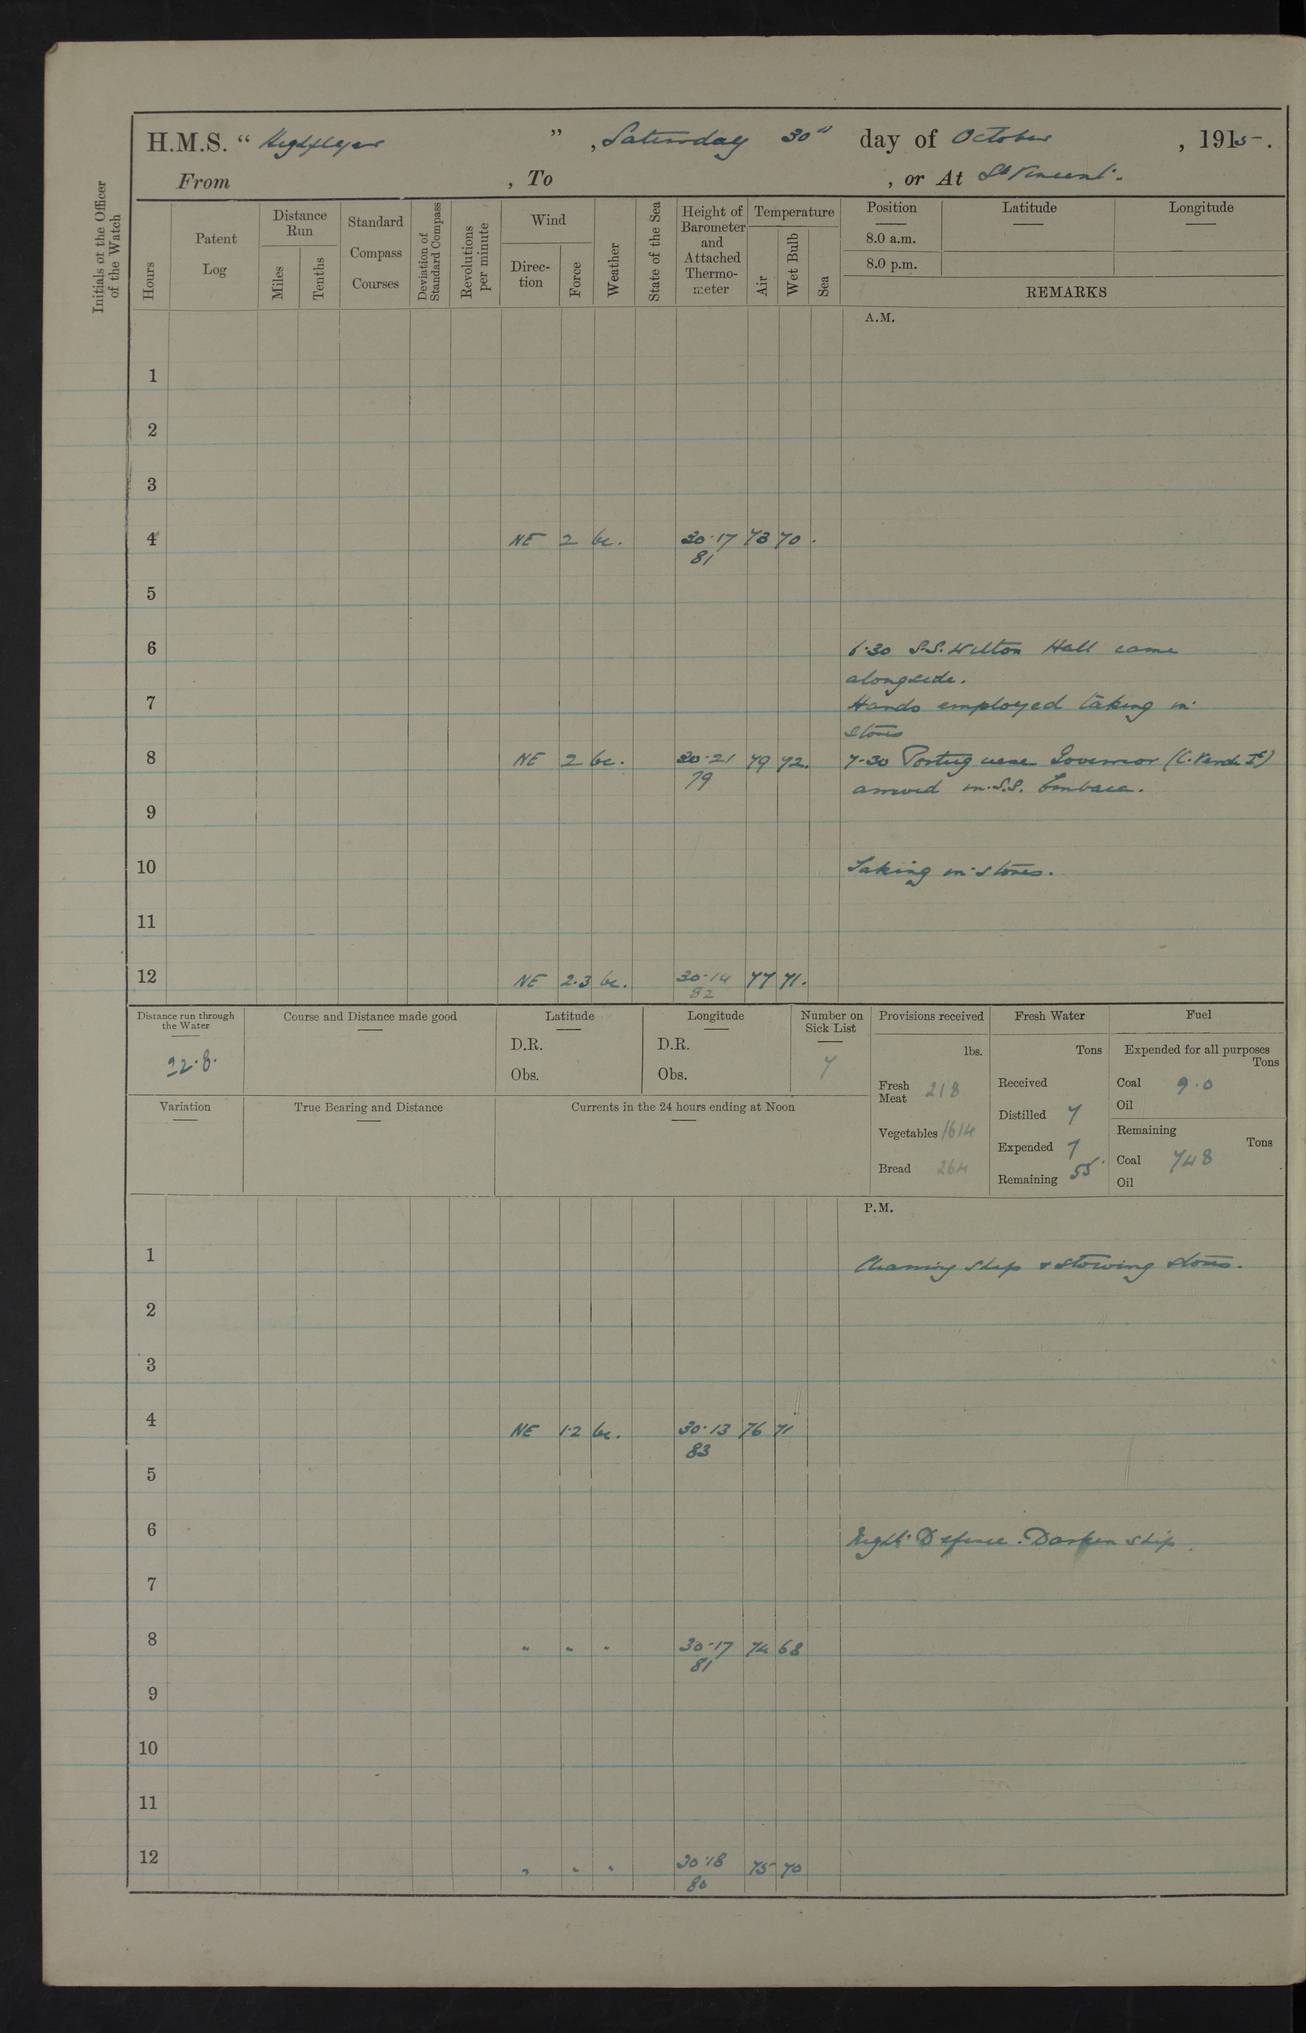 H.M.S. “ Highflyer ” , Saturday 30th day of October , 1915 .
From , To , or At St Vincent.
Initials of the Officer of the Watch
Hours
Patent Log
Distance Run
Miles
Tenths
Standard Compass Courses
Deviation of Standard Compass
Revolutions per minute
Wind
Direction
Force
Weather
State of the Sea
Height of Barometer and Attached Thermometer
Temperature
Air
Wet Bulb
Sea
Position Latitude Longitude
8.0 a.m.
8.0 p.m.
REMARKS
A.M.
1
2
3
4 NE 2 bc. 30.17 78 70 .
81
5
6 6.30 S.S. Wilton Hall came
alongside.
7 Hands employed taking in
stores
8 NE 2 bc. 30.21 79 72. 7.30 Portuguese Governor (C. Verde Is)
79 arrived in S.S.
9
10 Taking in stores.
11
12 NE 2.3 bc. 30.14 77 71.
82
Distance run through the Water
22.8.
Course and Distance made good
Latitude
D.R.
Obs.
Longitude
D.R.
Obs.
Number on Sick List
7
Provisions received
lbs.
Fresh Meat 218
Vegetables 1614
Bread 264
Fresh Water
Tons
Received
Distilled 7
Expended 7
Remaining 55
Fuel
Expended for all purposes
Tons
Coal 9.0
Oil
Remaining
Tons
Coal 748
Oil
Variation
True Bearing and Distance
Currents in the 24 hours ending at Noon
P.M.
1 Cleaning ship & stowing stores.
2
3
4 NE 1.2 bc. 30.13 76 71
83
5
6 Night Defence. Darken ship.
7
8 " " " 30.17 74 68
81
9
10
11
12 " " " 30.18 75 70
80